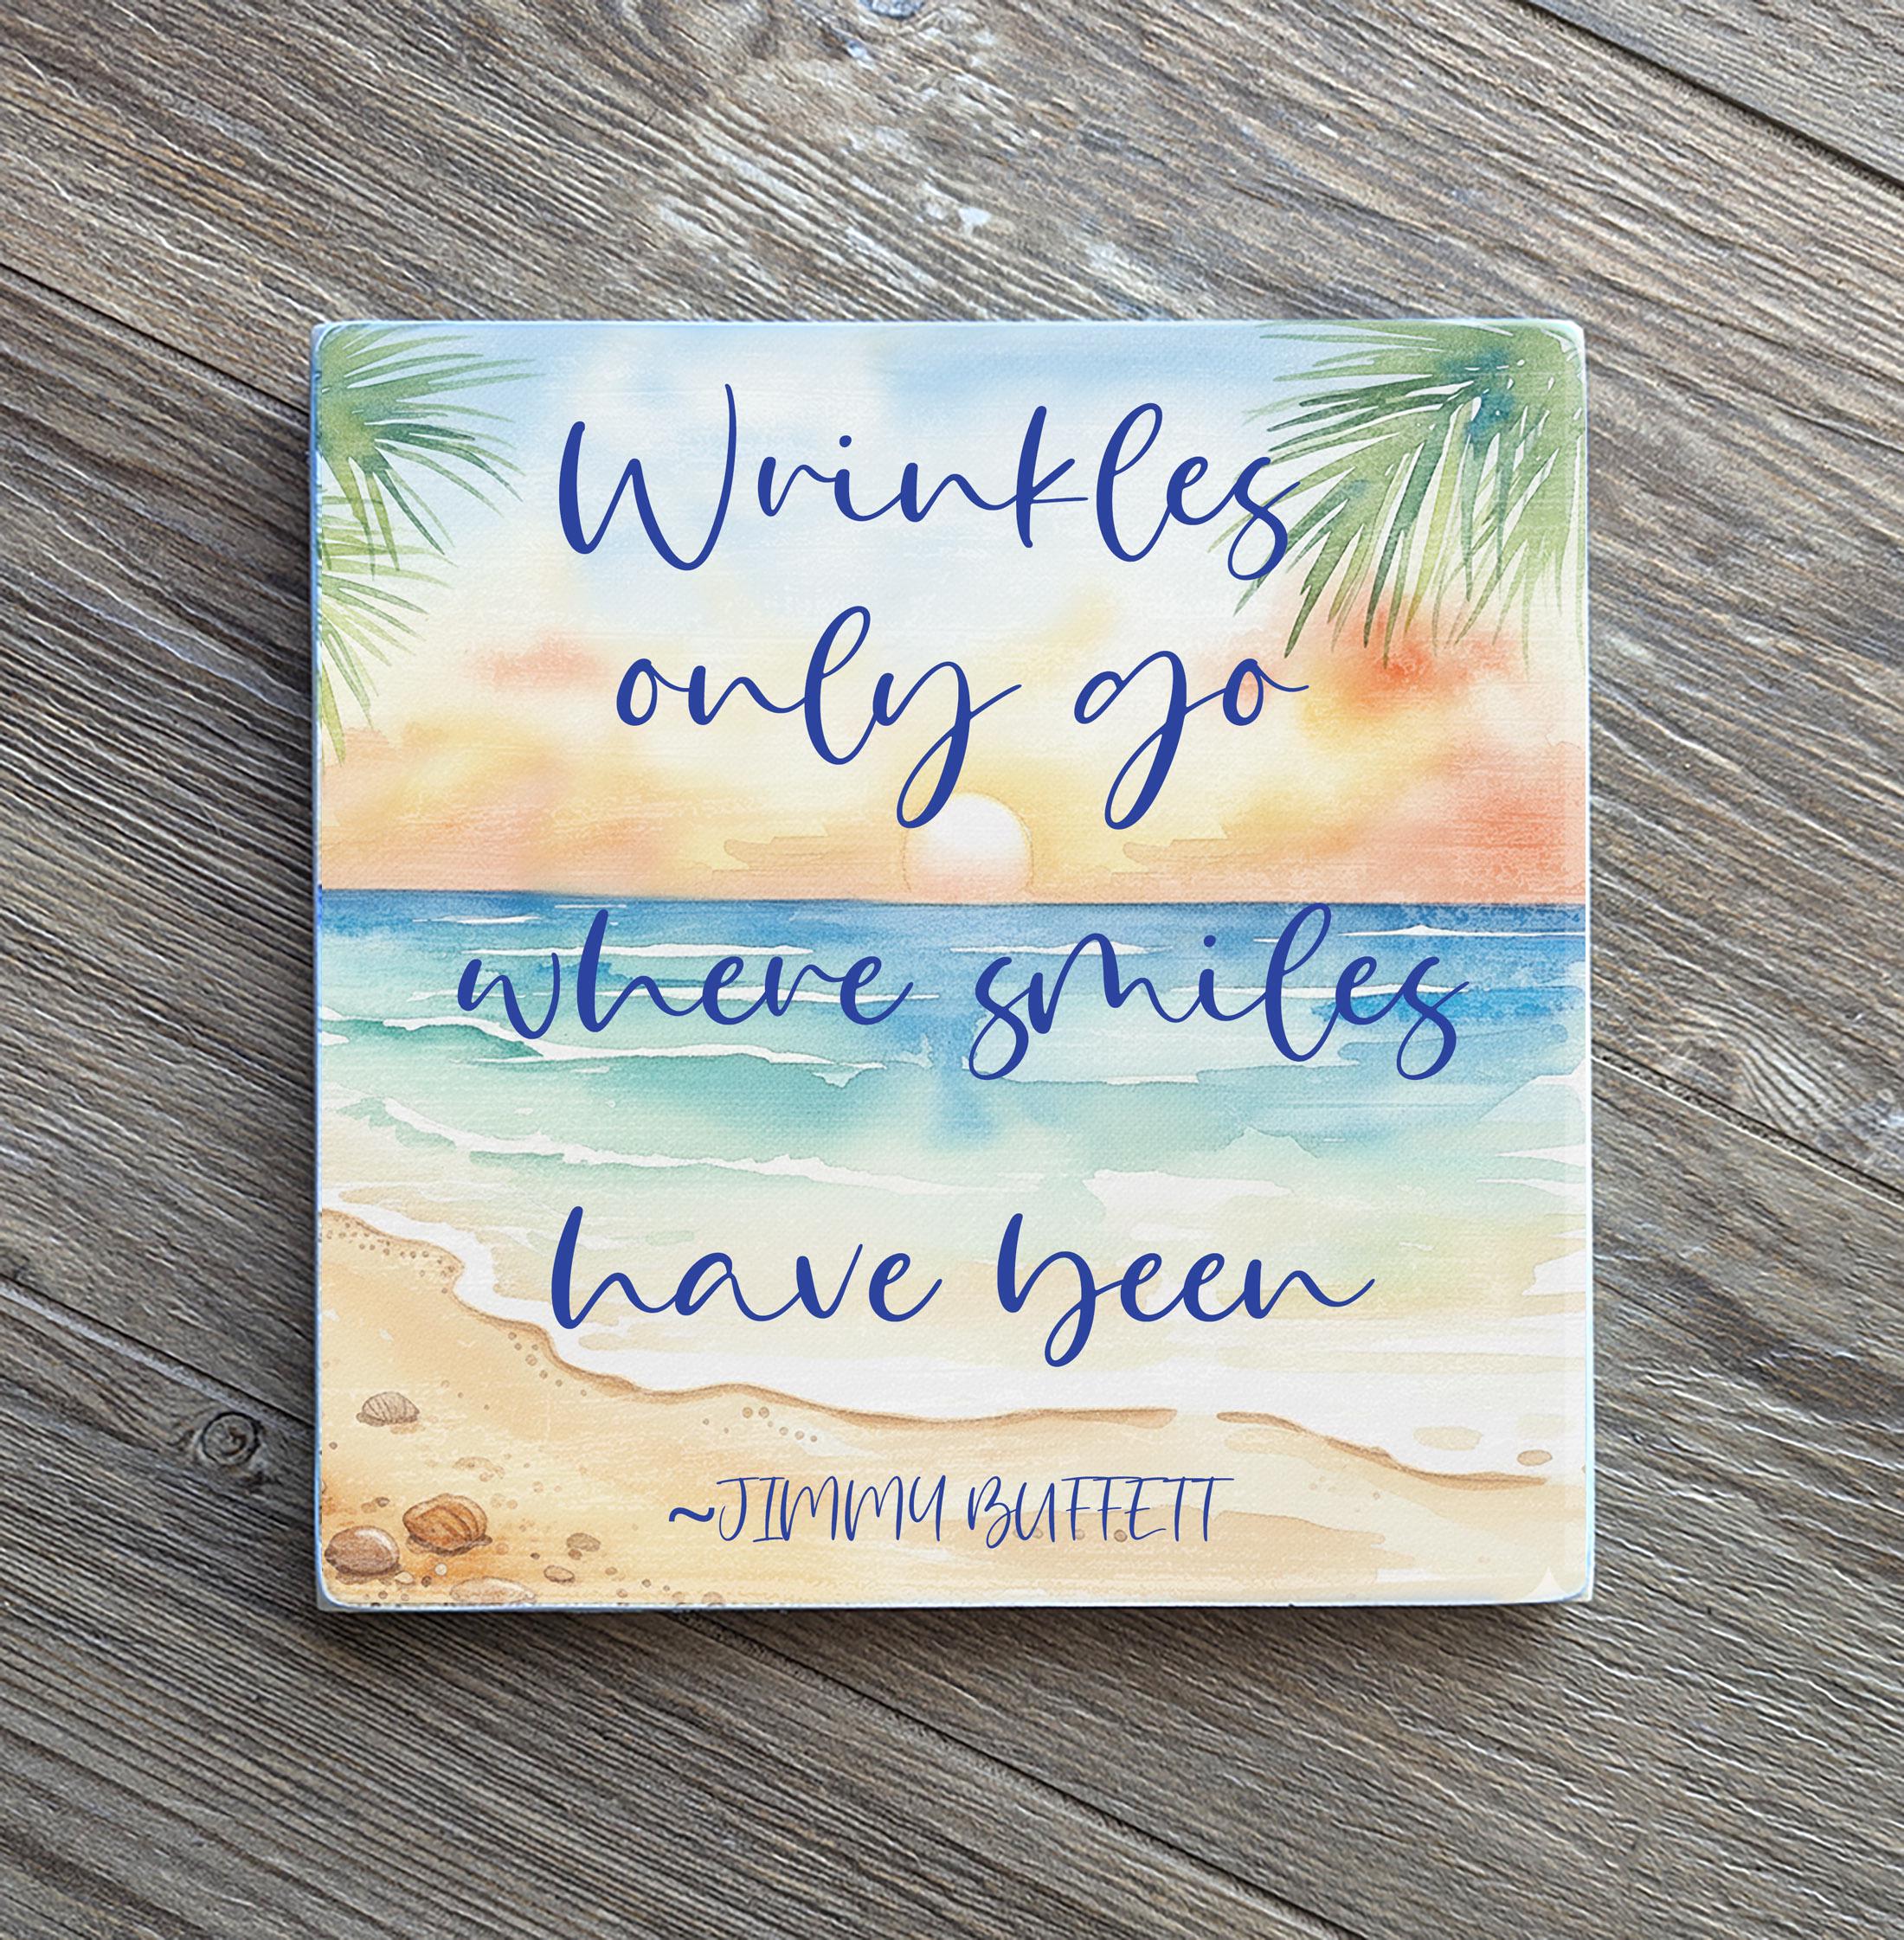 Wrinkles
only go
where smiles
have been
~JIMMY BUFFETT